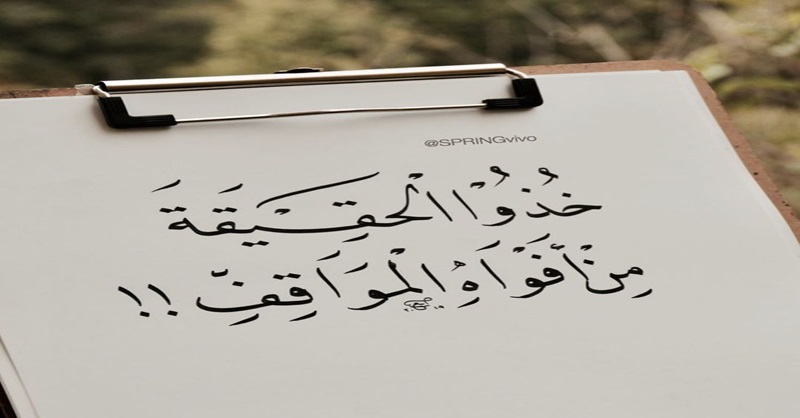 @SPRINGvivo
خُذُوْا الْحَقِيْقَةَ
مِنْ أَفْوَاهِ الْمَوَاقِفِ !!